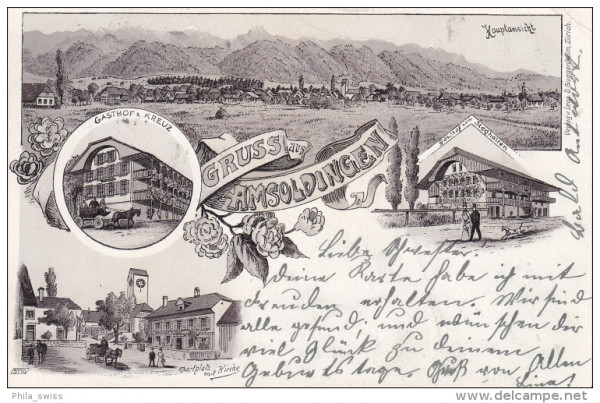 Hauptansicht
Verlag v. Leop. D. Guggenheim, Zürich.
GASTHOF Z. KREUZ
GRUSS aus
AMSOLDINGEN
Liebe Schwester.
deine Karte habe ich mit
Freuden erhalten. Wir sind
alle gesund, und wünschen dir
viel Glück zu deinem
Geburtstage. Gruß von Allen
Bald Antwort.
Dorfplatz
mit Kirche
Phila_swiss
delcampe.net